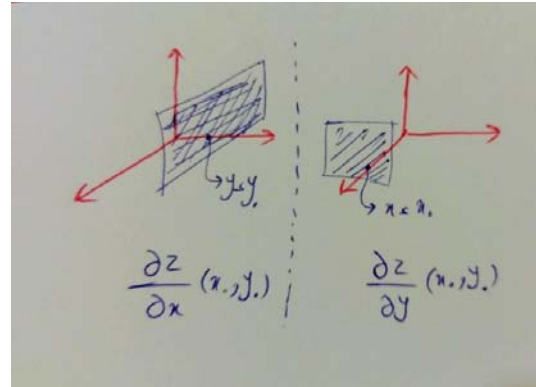 y = y₀
x = x₀
∂z/∂x (x₀, y₀)
∂z/∂y (x₀, y₀)